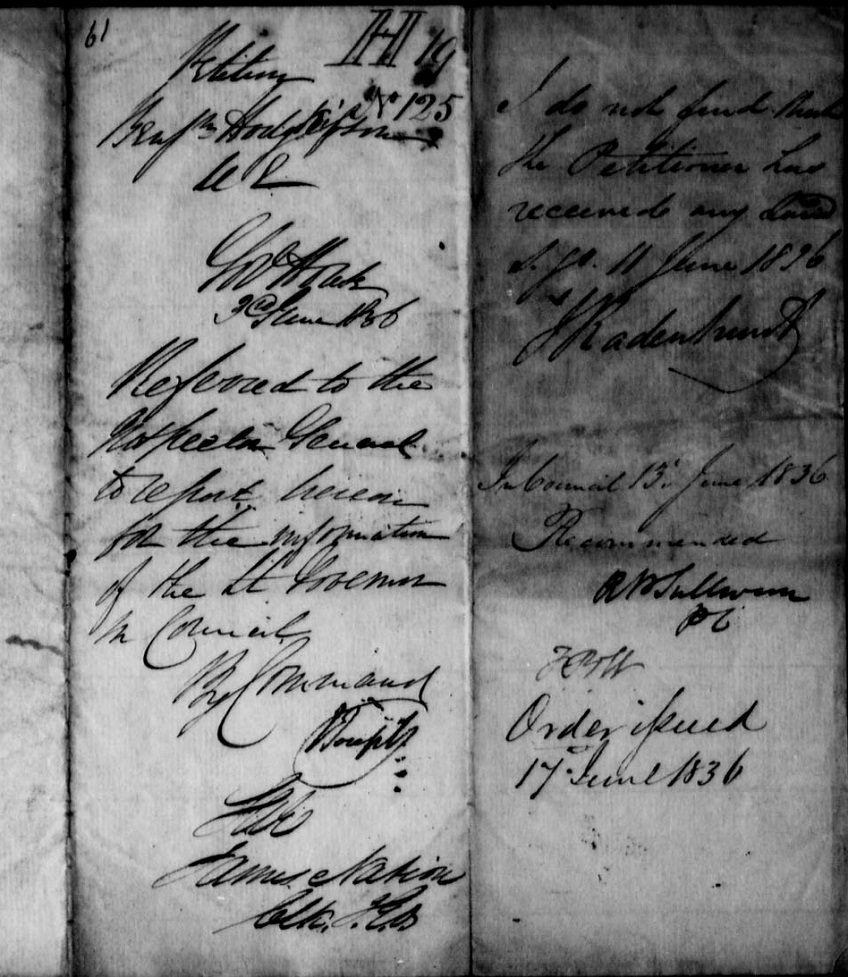 61
H 19
Petition
No 125
Benjn Hodgkinson
U E
Govt House
3d June 1836
Referred to the
Inspector General
to report hereon
for the information
of the Lt Governor
in Council
By Command
James Nation
Clk. I. G. O
I do not find that
the Petitioner has
received any Land
S. G. O. 11 June 1836
J Radenhurst
In Council 13 June 1836
Recommended
R B Sullivan
P C
F B H
Order issued
17 June 1836